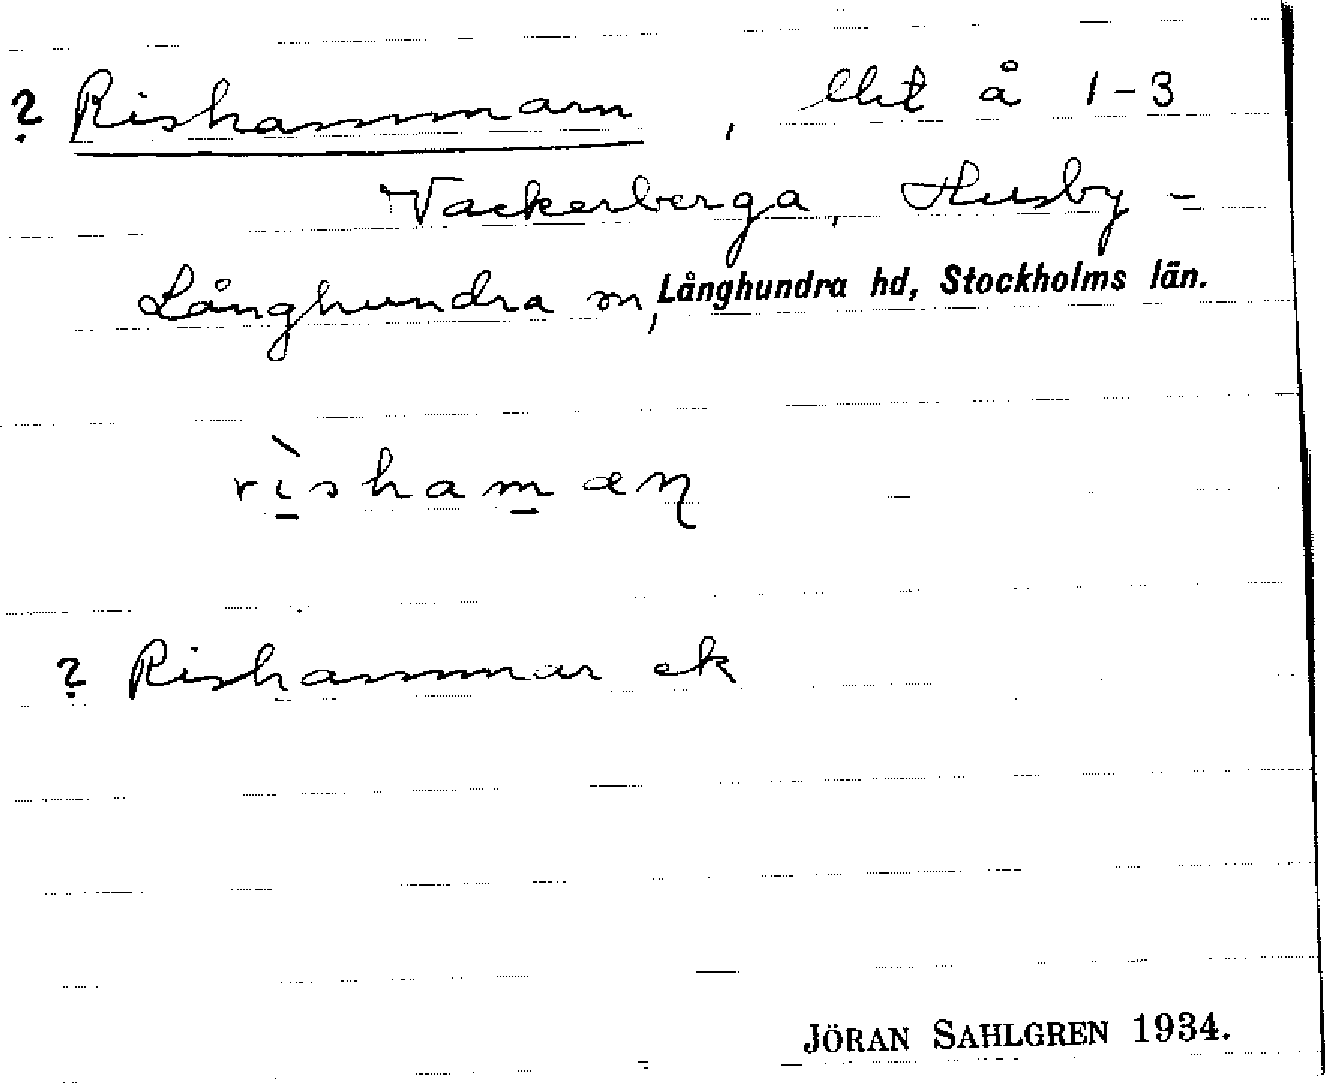 ? Rishammarn, Utét å 1-3
Vackerberga, Husby-
Långhundra sn, Långhundra hd, Stockholms län.
rìshamaɳ
? Rishammar ek
JÖRAN SAHLGREN 1934.